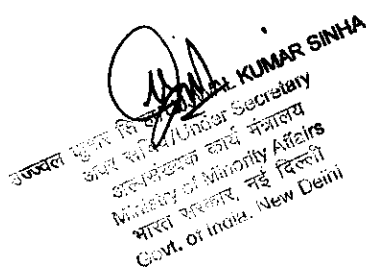 उज्ज्वल कुमार सि KUMAR SINHA
अवर सचिव/Under Secretary
अल्पसंख्यक कार्य मंत्रालय
Ministry of Minority Affairs
भारत सरकार, नई दिल्ली
Govt. of India, New Delhi